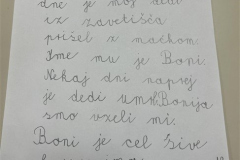 dne je moj dedi
iz zavetišča
prišel z mačkom.
Ime mu je Boni.
Nekaj dni naprej
je dedi umrl. Bonija
smo vzeli mi.
Boni je cel sive